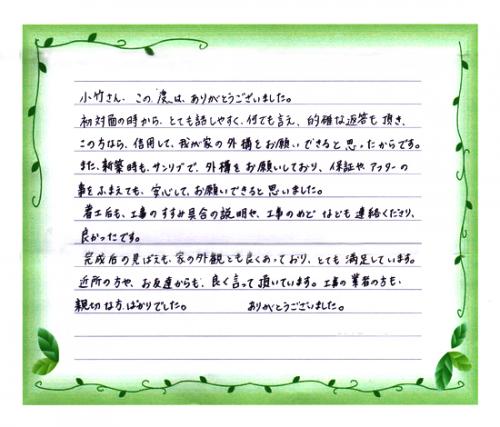 小竹さん、この度は、ありがとうございました。
初対面の時から、とても話しやすく、何でも言え、的確な返答も頂き、
この方なら、信用して、我が家の外構をお願いできると思ったからです。
また、新築時も、サンリブで、外構をお願いしており、保証や、アフターの
事をふまえても、安心して、お願いできると思いました。
着工后も、工事のすすみ具合の説明や、工事のめどなども連絡くださり、
良かったです。
完成后の見ばえも、家の外観とも良くあっており、とても満足しています。
近所の方や、お友達からも、良く言って頂いています。工事の業者の方も、
親切な方ばかりでした。 ありがとうございました。